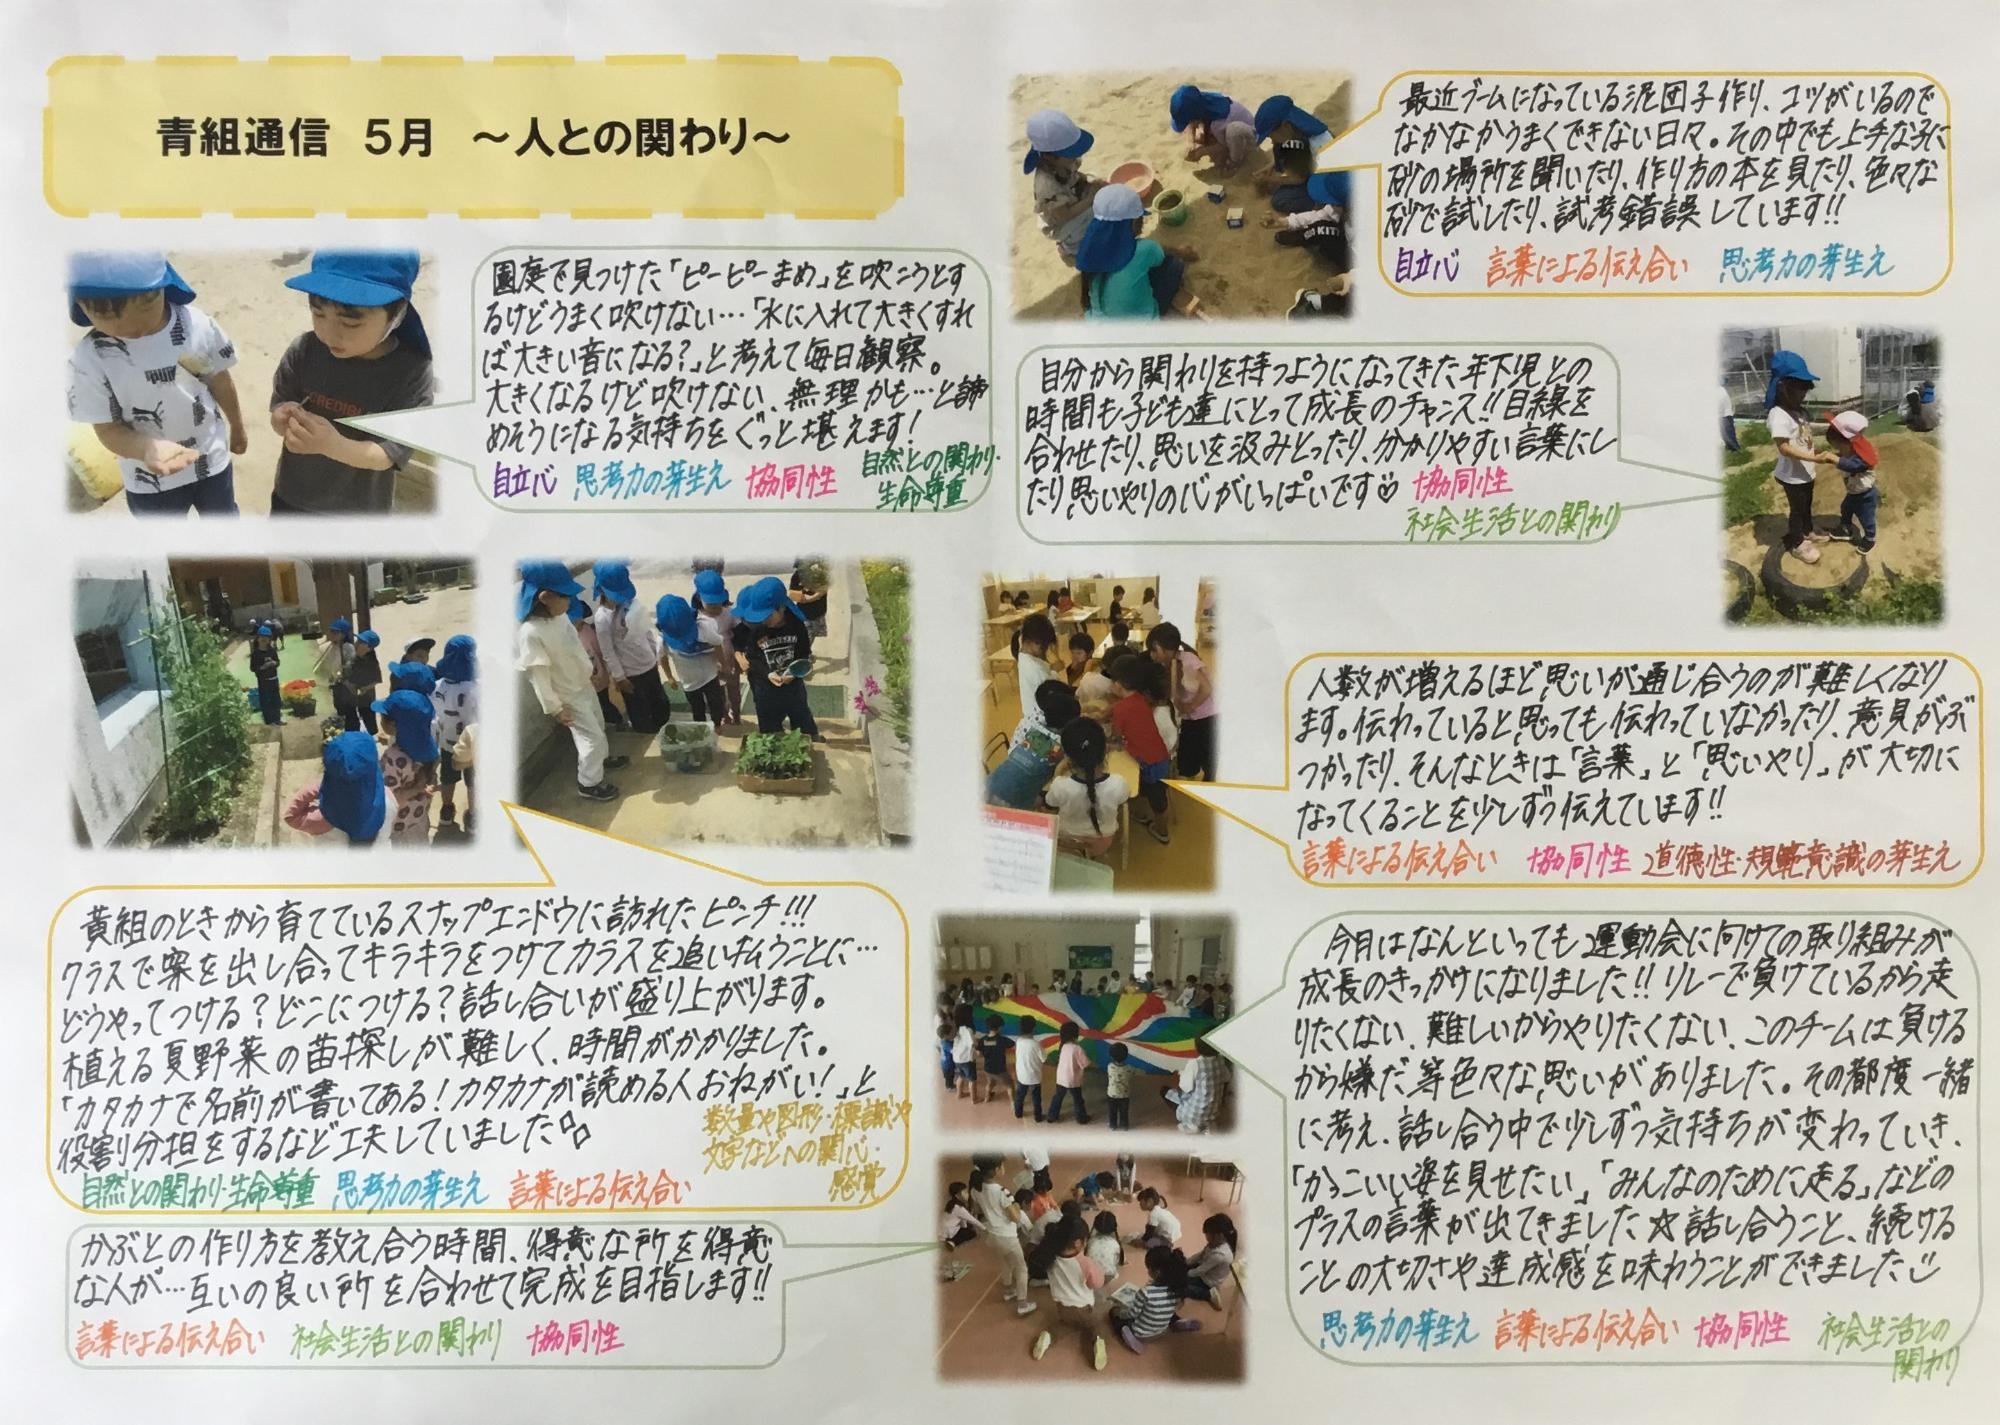 青組通信 5月 ~人との関わり~
最近ブームになっている泥団子作り、コツがいるので
なかなかうまくできない日々。その中でも上手な子に
砂の場所を聞いたり、作り方の本を見たり、色々な
砂で試したり、試考錯誤しています!!
自立心 言葉による伝え合い 思考力の芽生え
園庭で見つけた「ピーピーまめ」を吹こうとす
るけどうまく吹けない…「水に入れて大きくすれ
ば大きい音になる?」と考えて毎日観察。
大きくなるけど吹けない、無理かも…と諦
めそうになる気持ちをぐっと堪えます!
自立心 思考力の芽生え 協同性 自然との関わり・
生命尊重
自分から関わりを持つようになってきた年下児との
時間も子ども達にとって成長のチャンス!!目線を
合わせたり、思いを汲みとったり、分かりやすい言葉にし
たり思いやりの心がいっぱいです♡ 協同性
社会生活との関わり
人数が増えるほど思いが通じ合うのが難しくなり
ます。伝わっていると思っても伝わっていなかったり、意見がぶ
つかったり、そんなときは「言葉」と「思いやり」が大切に
なってくることを少しずつ伝えています!!
言葉による伝え合い 協同性 道徳性・規範意識の芽生え
黄組のときから育てているスナップエンドウに訪れたピンチ!!!
クラスで案を出し合ってキラキラをつけてカラスを追い払うことに…
どうやってつける?どこにつける?話し合いが盛り上がります。
植える夏野菜の苗探しが難しく、時間がかかりました。
「カタカナで名前が書いてある!カタカナが読める人おねがい!」と
役割分担をするなど工夫していました
数量や図形・標識や
文字などへの関心・
感覚
自然との関わり・生命尊重 思考力の芽生え 言葉による伝え合い
今月はなんといっても運動会に向けての取り組みが
成長のきっかけになりました!!リレーで負けているから走
りたくない、難しいからやりたくない、このチームは負ける
から嫌だ等色々な思いがありました。その都度一緒
に考え、話し合う中で少しずつ気持ちが変わっていき、
「かっこいい姿を見せたい」「みんなのために走る」などの
プラスの言葉が出てきました☆話し合うこと、続ける
ことの大切さや達成感を味わうことができました
思考力の芽生え 言葉による伝え合い 協同性 社会生活との
関わり
かぶとの作り方を教え合う時間、得意な所を得意
な人が…互いの良い所を合わせて完成を目指します!!
言葉による伝え合い 社会生活との関わり 協同性